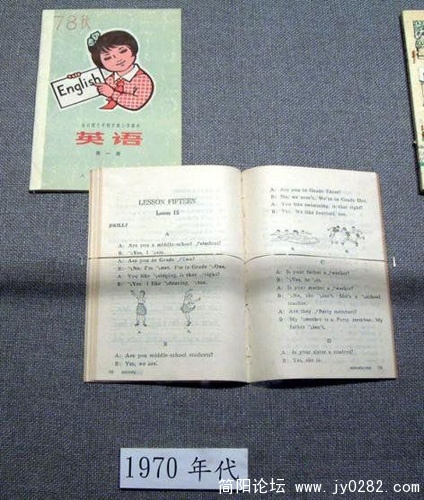 78秋
English
英语
第一册
LESSON FIFTEEN
Lesson 15
DRILLS
A
A: Are you a middle-school student?
B: Yes, I am.
A: Are you in Grade Two?
B: No, I'm not. I'm in Grade One.
A: You like singing, is that right?
B: Yes. I like dancing, too.
B
A: Are you middle-school students?
B: Yes, we are.
A: Are you in Grade Three?
B: No, we aren't. We're in Grade One.
A: You like swimming, is that right?
B: Yes. We like football, too.
C
A: Is your father a worker?
B: Yes, he is.
A: Is your mother a worker?
B: No, she isn't. She's a school
teacher.
A: Are they Party members?
B: My mother is a Party member. My
father isn't.
D
A: Is your sister a student?
B: Yes, she is.
1970 年代
简阳论坛 www.jy0282.com